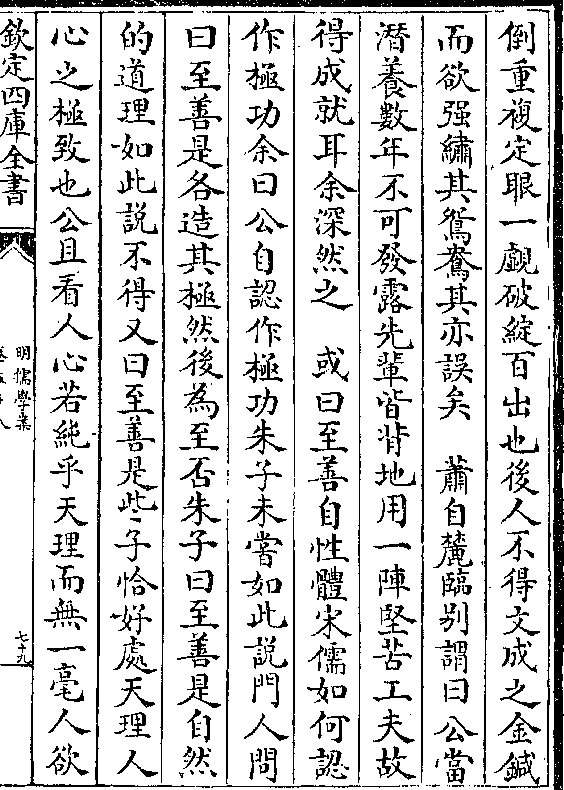 倒重複定眼一覷破綻百出也後人不得文成之金鍼
而欲强繡其鴛鴦其亦誤矣　蕭自麓臨别謂曰公當
潛養數年不可發露先輩皆背地用一陣堅苦工夫故
得成就耳余深然之　或曰至善自性體宋儒如何認
作極功余曰公自認作極功朱子未嘗如此說門人問
曰至善是各造其極然後為至否朱子曰至善是自然
的道理如此說不得又曰至善是些子恰好處天理人
心之極致也公且看人心若純乎天理而無一毫人欲
欽定四庫全書
明儒學案
七十九